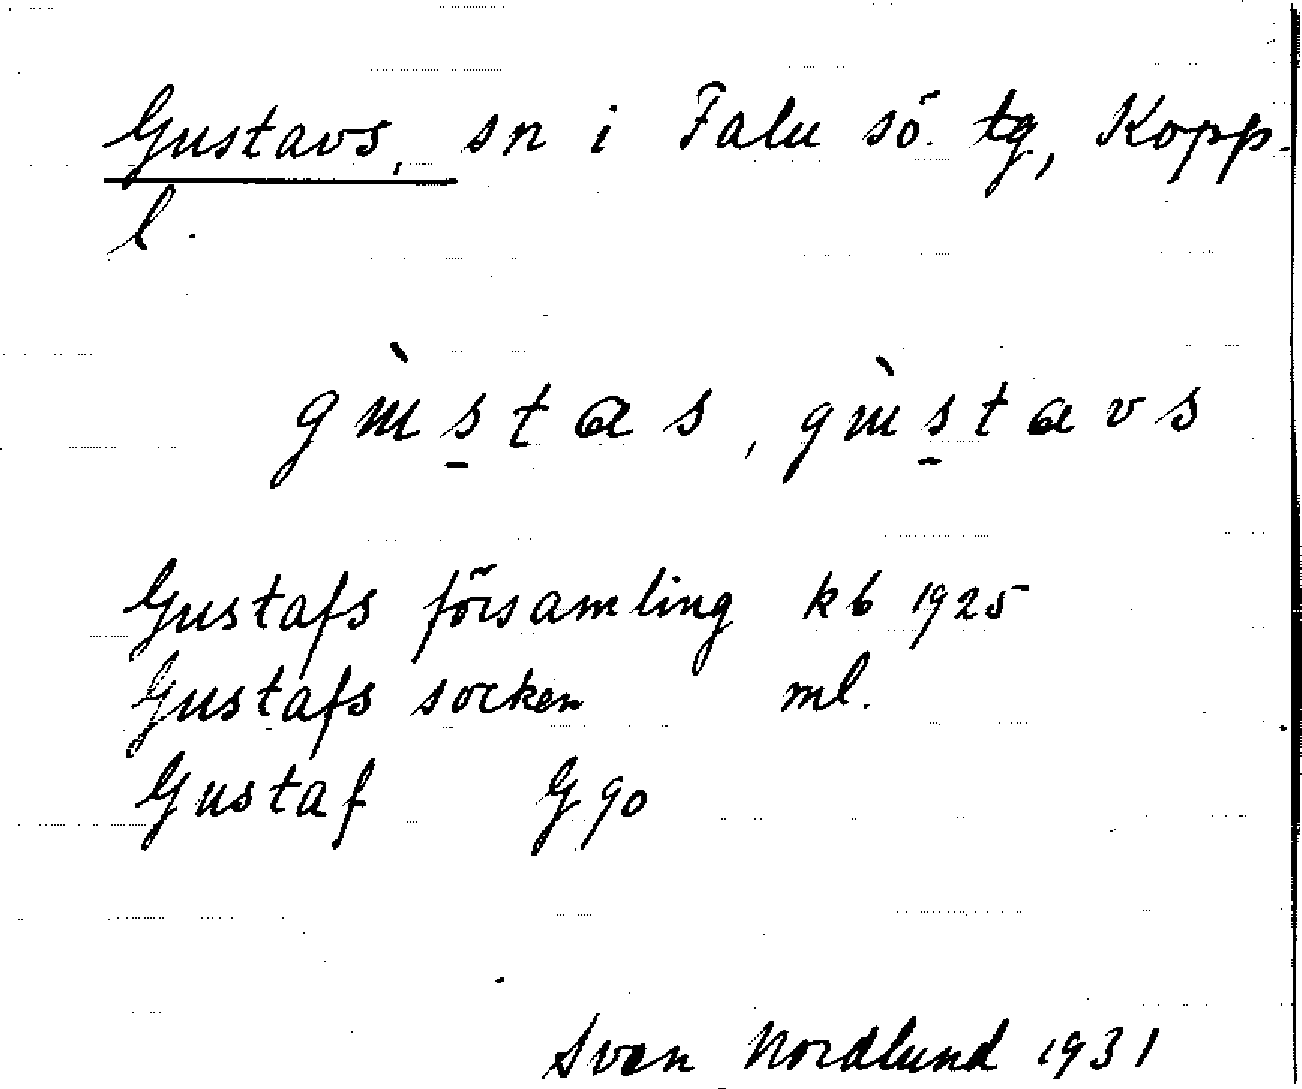 Gustavs, sn i Falu sö. tg, Kopp.
l.
gɯ̀s̠tas, gɯ̀s̠tavs
Gustafs församling kb 1925
Gustafs socken ml.
Gustaf G 90
Sven Nordlund 1931